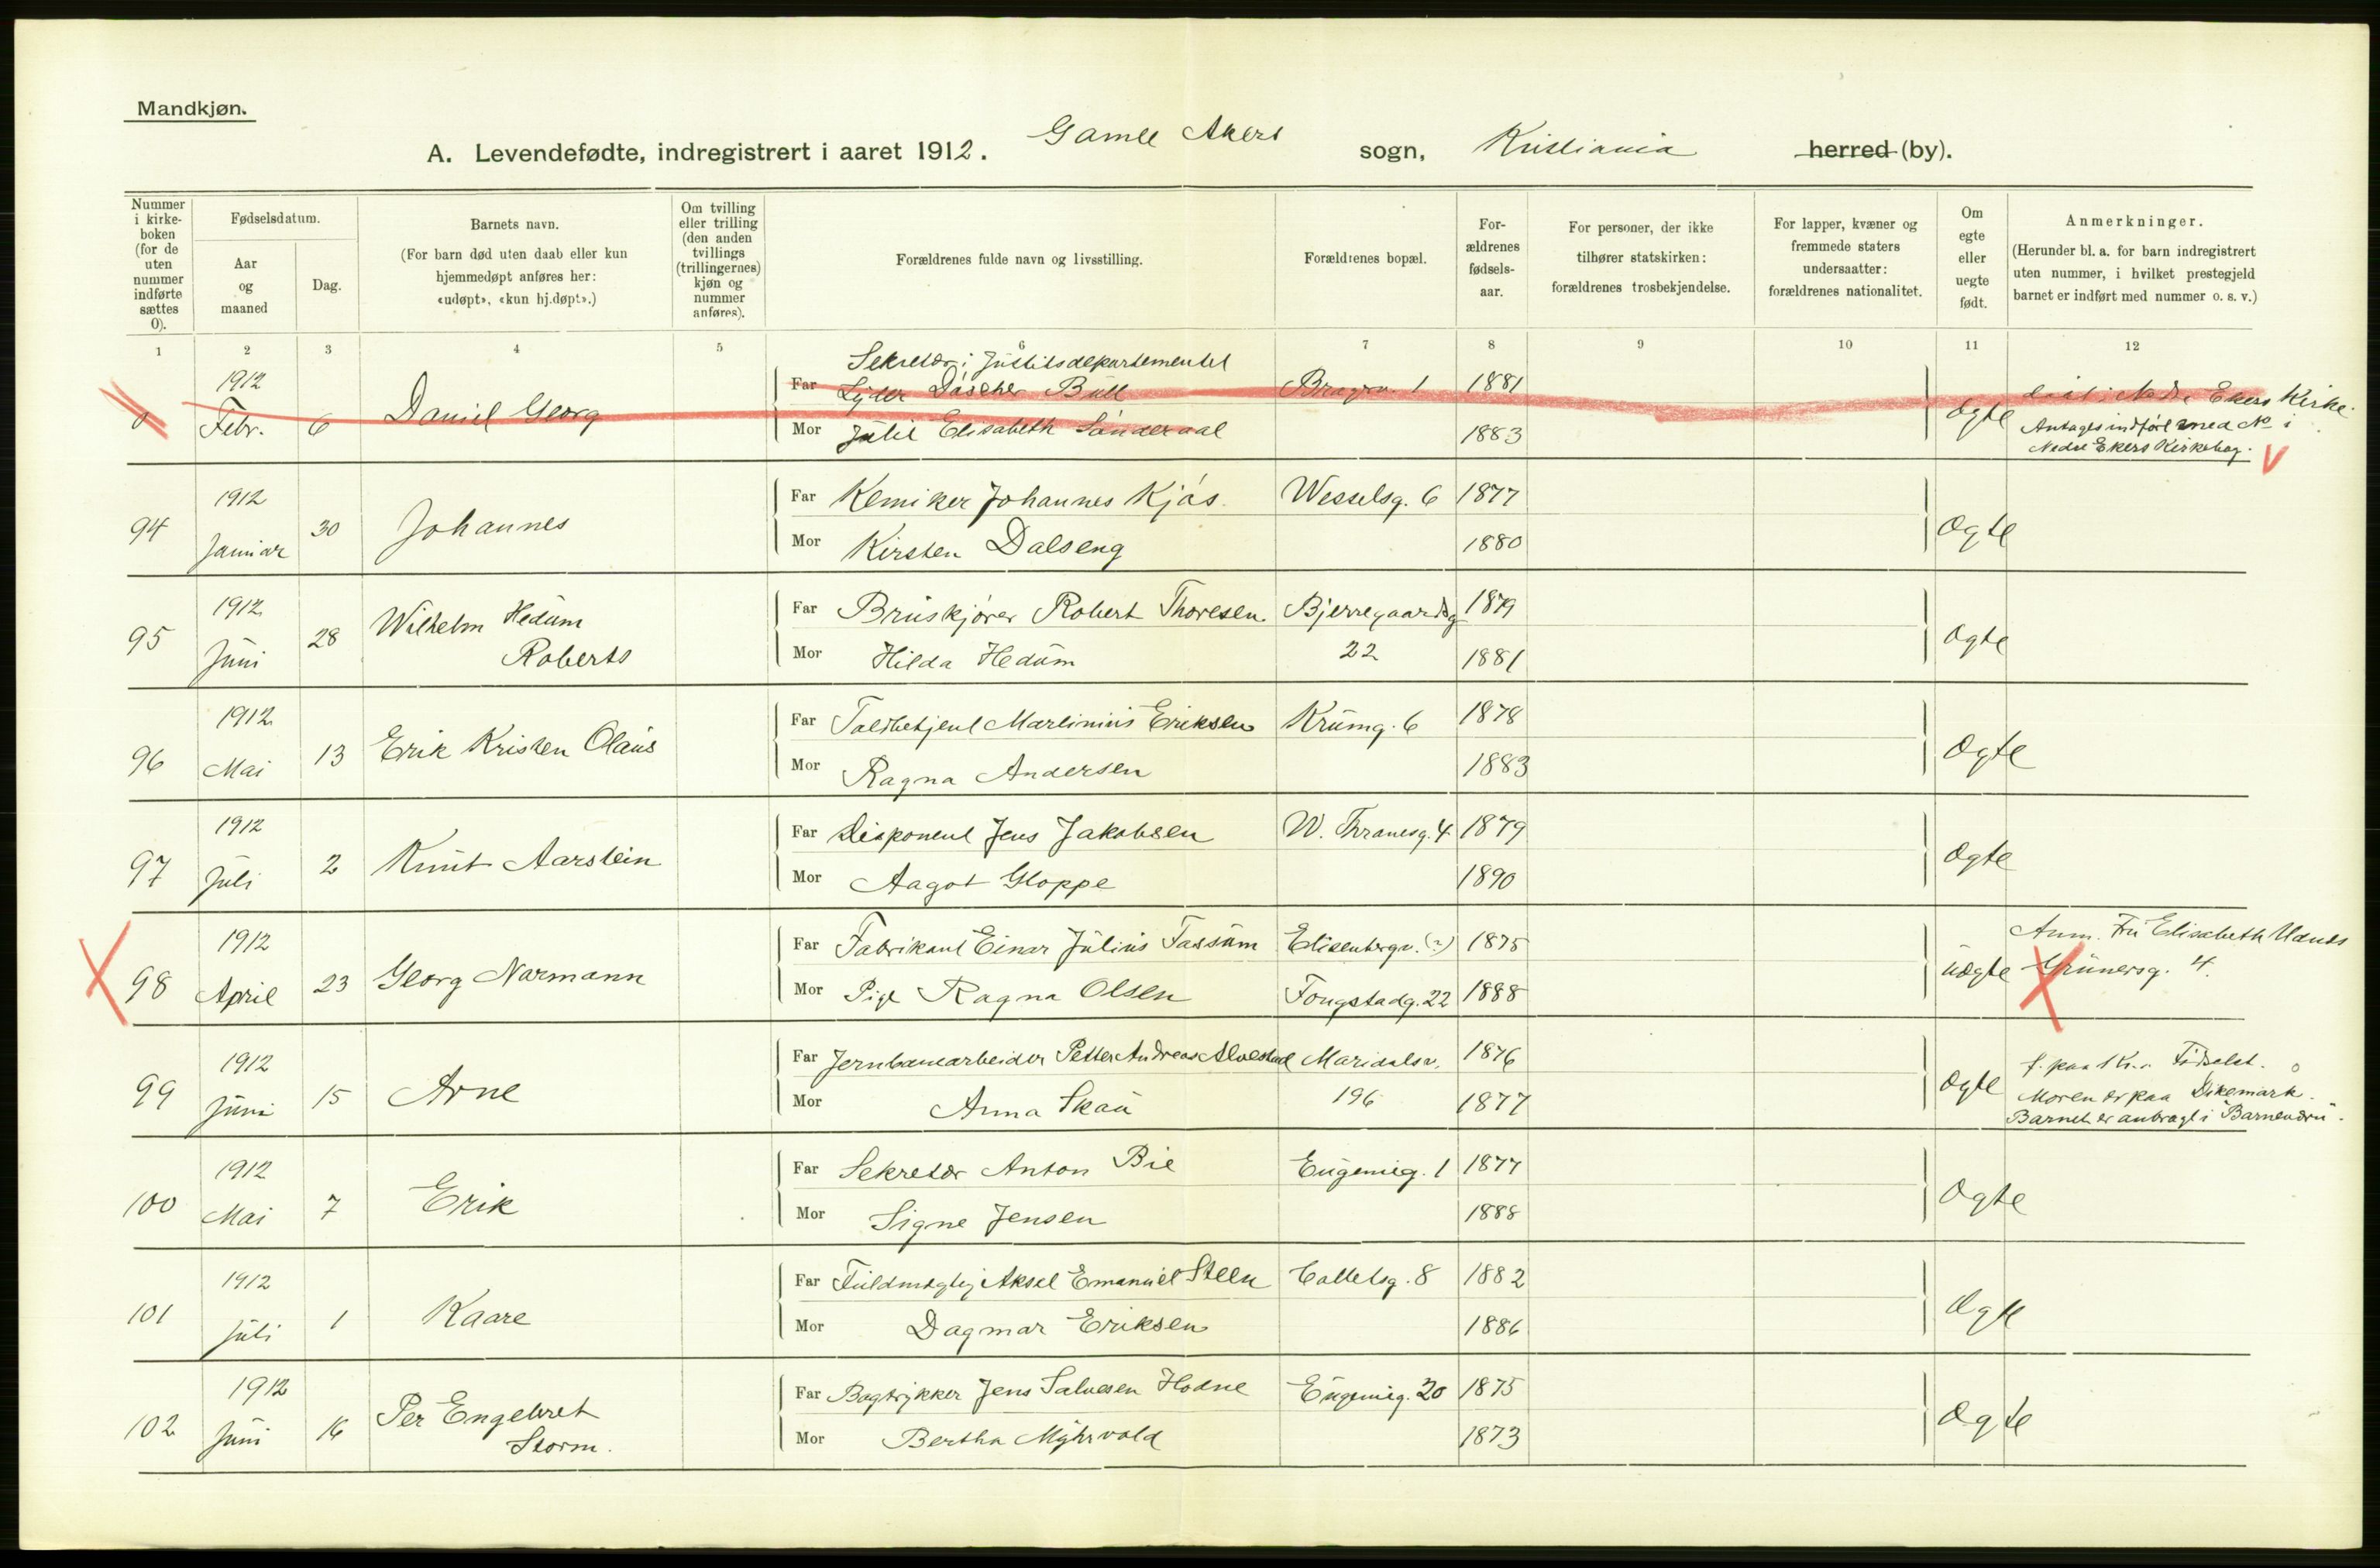 Mandkjøn.
A. Levendefødte, indregistrert i aaret 1912. Gamle Akers sogn, Kristiania herred (by).
Nummer i kirke-boken (for de uten nummer indførte sættes 0).
Fødselsdatum.
Aar og maaned
Dag.
Barnets navn.
(For barn død uten daab eller kun hjemmedøpt anføres her: «udøpt», «kun hj.døpt».)
Om tvilling eller trilling (den anden tvillings (trillingernes) kjøn og nummer anføres).
Forældrenes fulde navn og livsstilling.
Forældrenes bopæl.
For-ældrenes fødsels-aar.
For personer, der ikke tilhører statskirken: forældrenes trosbekjendelse.
For lapper, kvæner og fremmede staters undersaatter: forældrenes nationalitet.
Om egte eller uegte født.
Anmerkninger.
(Herunder bl. a. for barn indregistrert uten nummer, i hvilket prestegjeld barnet er indført med nummer o. s. v.)
1 2 3 4 5 6 7 8 9 10 11 12
Sekretær i Justitsdepartementet
1912 Far Lyder Bull 1 1881 Nedre Ekers Kirke.
0 Febr. 6 Daniel Georg Ægte Antages indført med No i
Mor Julie Elisabeth Sønderaal 1883 Nedre Ekers Kirkebog. V
1912 Far Kemiker Johannes Kjøs. Wesselsg. 6 1877
94 Januar 30 Johannes Ægte
Mor Kirsten Dalseng 1880
1912 Far Bruskjører Robert Thoresen Bjerregaardsg 1879
95 Juni 28 Wilhelm Hedum Ægte
Roberts Mor Hilda Hedum 22 1881
1912 Far Toldbetjent Martinius Eriksen Krumg. 6 1878
96 Mai 13 Erik Kristen Olaus Ægte
Mor Ragna Andersen 1883
1912 Far Disponent Jens Jakobsen W. Thranesg. 4 1879
97 Juli 2 Knut Aarstein Ægte
Mor Aagot Gloppe 1890
1912 Far Fabrikant Einar Julius Fassum Elisenbergv. (?) 1875 Anm. Fru Elisabeth
98 April 23 Georg Normann uægte Grünersg. 4.
Mor Pige Ragna Olsen Fougstadg. 22 1888
1912 Far Jernbanearbeider Petter Andreas Alvestad Maridalsv. 1876 f. paa Kr.a Fødselst.
99 Juni 15 Arne Ægte Moren er paa Dikemark.
Mor Anna Skau 196 1877 Barnet er anbragt i "Barnevern".
1912 Far Sekretær Anton Bie Eugenieg. 1 1877
100 Mai 7 Erik Ægte
Mor Signe Jensen 1888
1912 Far Fuldmægtig Aksel Emanuel Steen Colletsg. 8 1882
101 Juli 1 Kaare Ægte
Mor Dagmar Eriksen 1886
1912 Far Bogtrykker Jens Salvesen Hodne Eugenieg. 20 1875
102 Juni 16 Per Engebret Ægte
Storm. Mor Bertha Myhrvold 1873